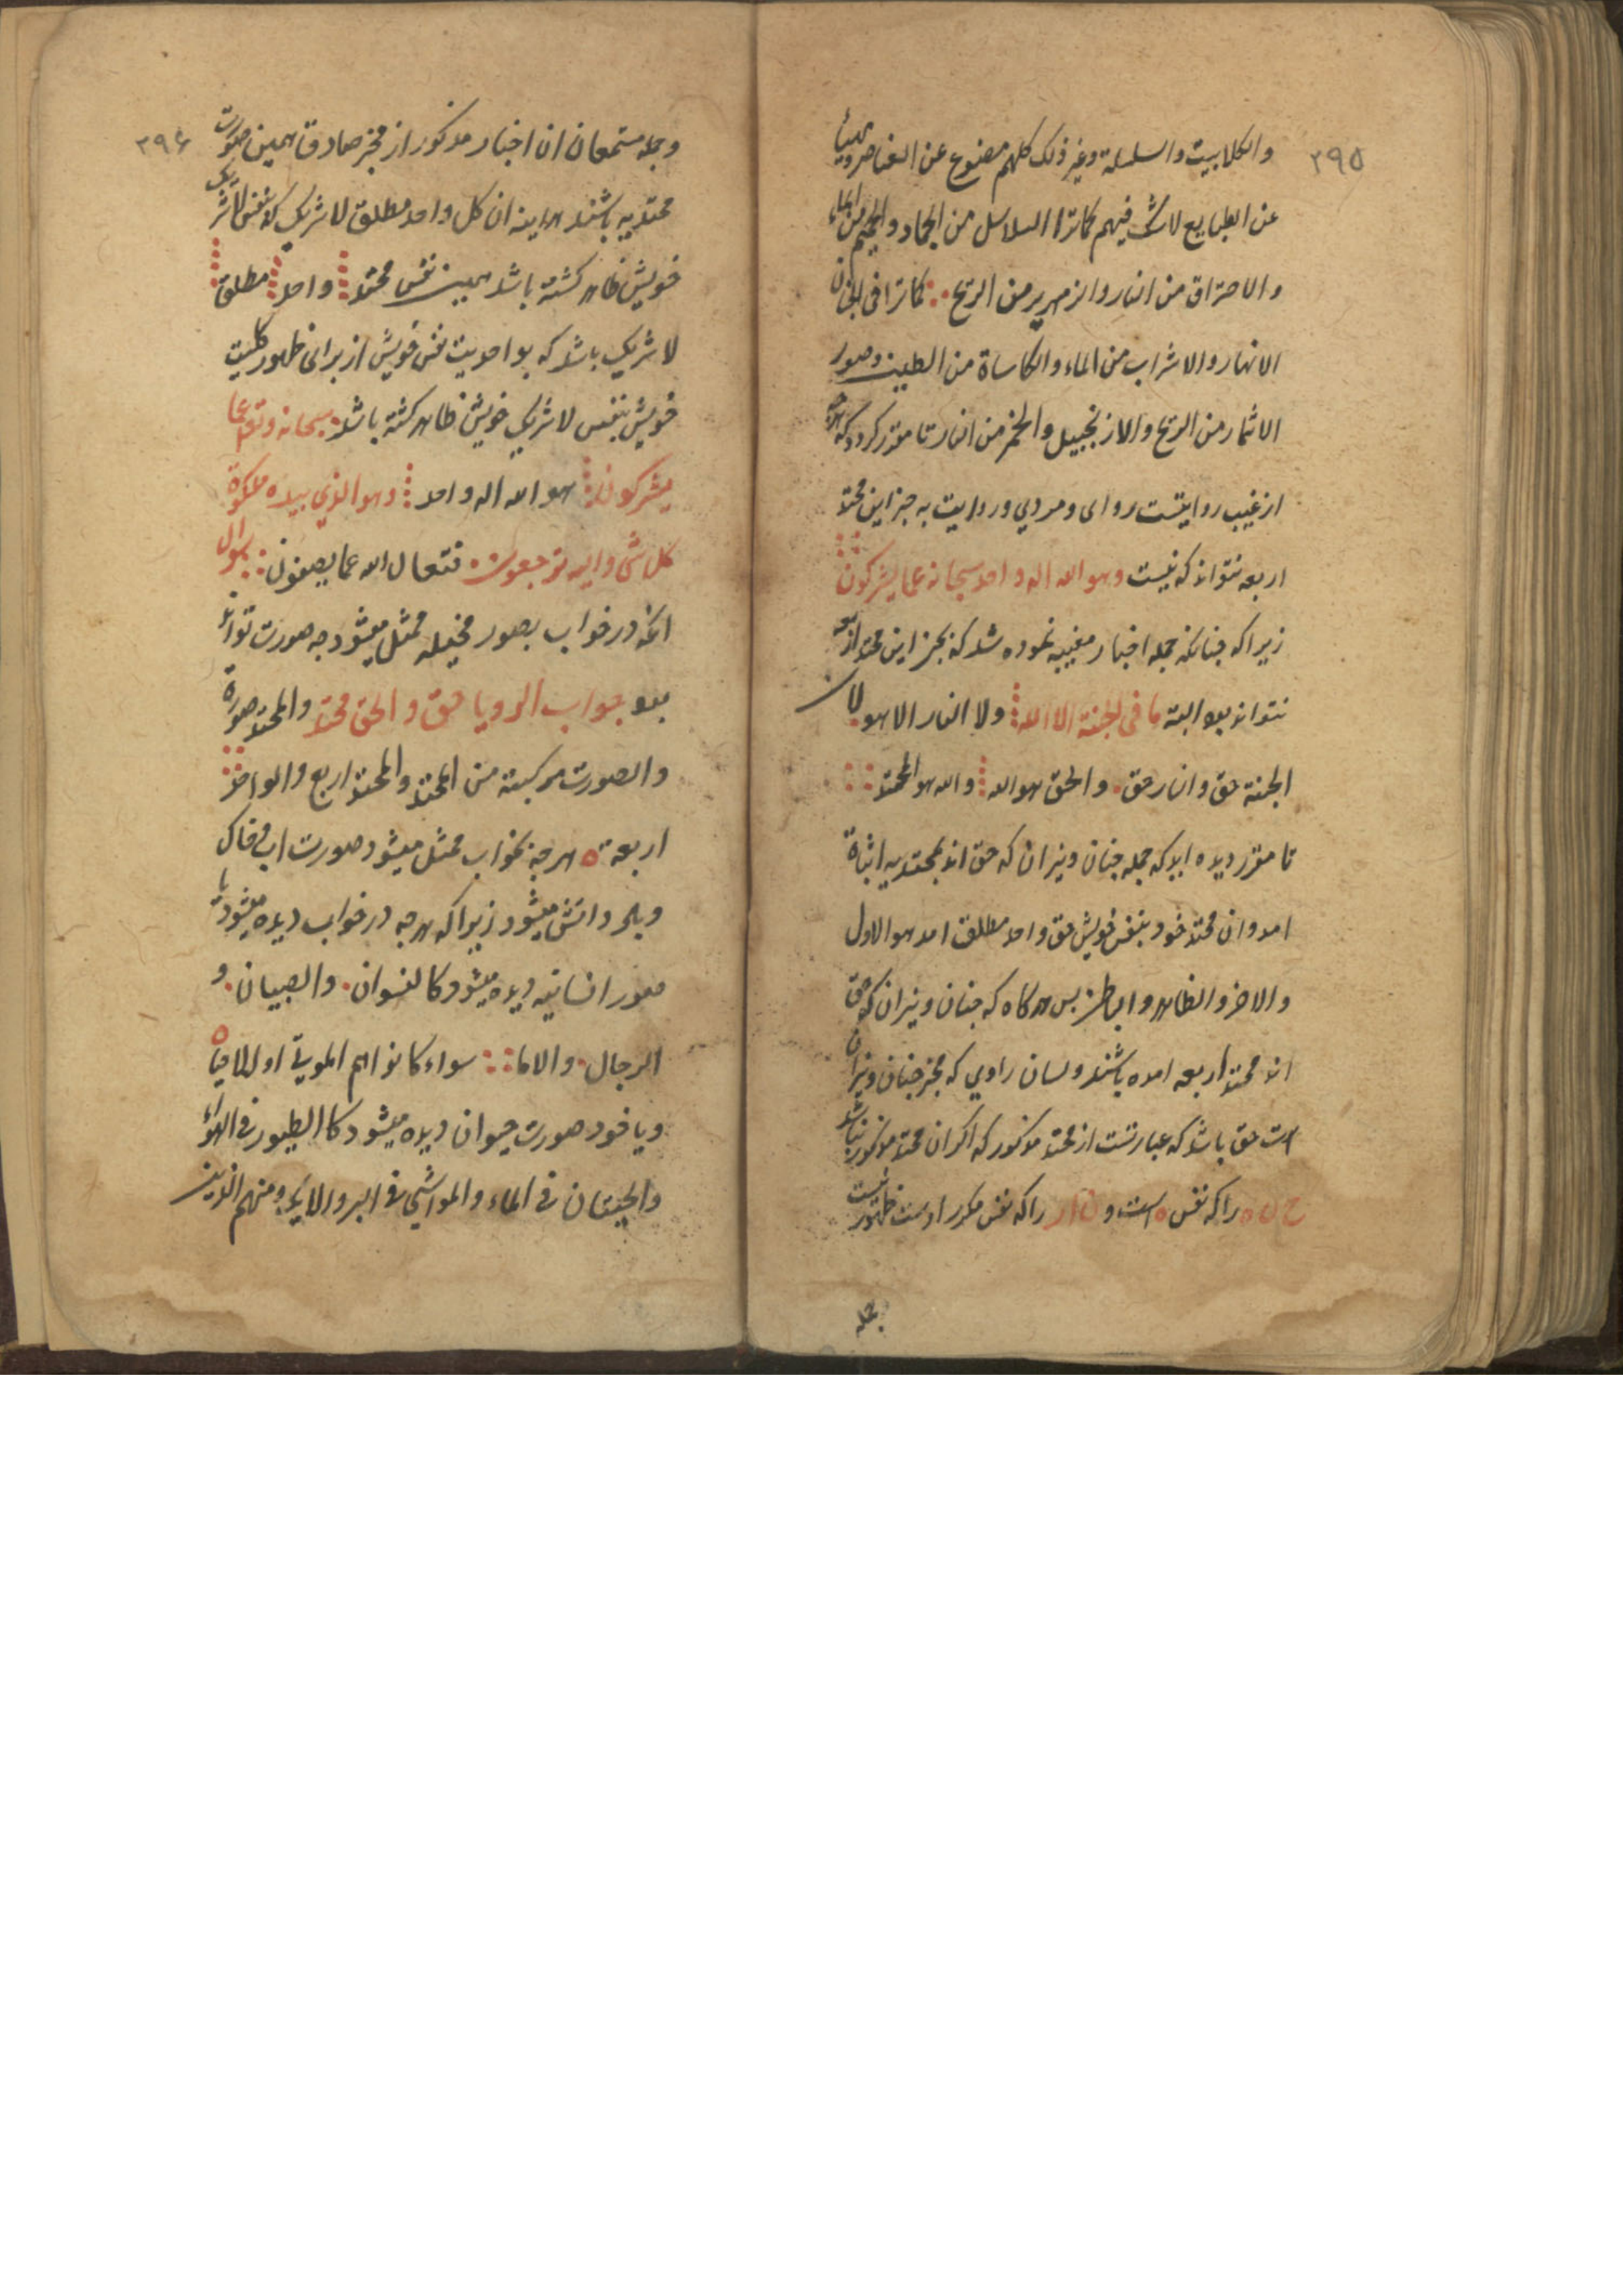 ۳۹۵
والکلابیت والسلسلة وغیر ذلک کلهم مصنوع عن العناصر
عن الطبایع لاشک فیهم کماترا السلاسل من الجماد والجحیم من الماء
والاحتراق من النار والزمهریر من الریح کماترا فی الجنان
الانهار والاشراب من الماء والکاساة من الطین وصور
الاثمار من الریح والازنجبیل والخمر من النار تا مقرر کردد که هرچه
از غیب روایتست روای و مردی و روایت به جز این محتد
اربعه نتواند که نیست وهو الله اله واحد سبحانه عما یشرکون
زیرا که چنانکه جمله اخبار مغیبه نموده شد که بجز این محتد اربعه
نتواند بود البته ما فی الجنة الا الله ولا النار الا هو لان
الجنة حق والنار حق والحق هو الله والله هو المحتد
تا مقرر دیده اید که جمله جنان و نیران که حق اند بمحتدیه اثباة
امد و ان محتد خود بنفس خویش حق واحد مطلق امد هو الاول
والاخر والظاهر والباطن پس هرکاه که جنان و نیران که حق
اند محتد اربعه امده باشند ولسان راوی که مخبر جنان و نیران
است حق باشد که عبارتست از محتد مذکور که اکر ان محتد مذکور نباشد
ح ن ه را که نفس ه است و ن ا ر را که نفس مکرر اوست ظهور نیست
جمله
۳۹۶
وجمله مستمعان ان اخبار مذکور از مخبر صادق همین صورت
محتدیه باشند هراینه ان کل واحد مطلق لاشریک که بنفس لاشریک
خویش ظاهر کشته باشد همین نفس محتد واحد مطلق
لاشریک باشد که بواحدیت نفس خویش از برای ظهور کلیت
خویش بنفس لاشریک خویش ظاهر کشته باشد سبحانه وتعالی عما
یشرکون هو الله اله واحد وهو الذی بیده ملکوة
کل شی والیه ترجعون فتعال الله عما یصفون سوال
انکه در خواب بصور مخیله ممثل میشود چه صورت تواند
بود جواب الرویا حق والحق محتد والمحتد صورة
والصورت مرکبته من المحتد والمحتد اربع والواحد
اربعة ه هرچه بخواب ممثل میشود صورت اب و خاک
وباد واتش میشود زیرا که هرچه در خواب دیده میشود یا
صور انسانیه دیده میشود کالنسوان والصبیان و
الرجال والاما سواء کانوا هم الموتی او الاحیاه
ویا خود صورت حیوان دیده میشود کاالطیور فی الهواء
والحیتان فی الماء والمواشی فی البر ومنهم الذین